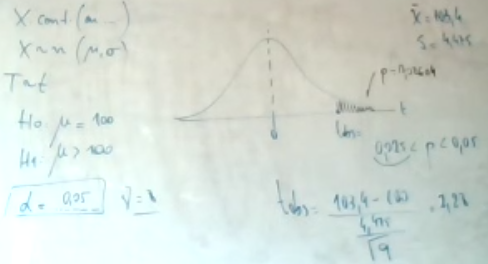 X cont (m...)
X ~ n (μ, σ)
T ~ t
H0: μ = 100
H1: μ > 100
α = 0,05
x̄ = 103,4
S = 4,475
t
0
tobs =
0,025 < p < 0,05
tobs = 103,4 - 100 / 4,475 / √9 = 2,28